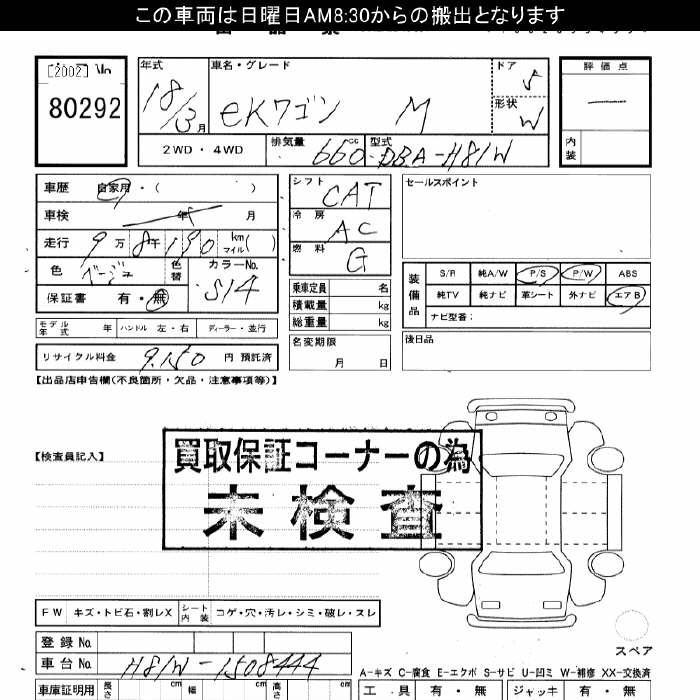 この車両は日曜日AM8:30からの搬出となります
[2002] No
80292
年式 車名・グレード ドア 評価点
18/3月 eKワゴン M 5
形状 W
2WD・4WD 排気量 660cc 型式 DBA-H81W 内装
車歴 自家用・( )
シフト CAT
セールスポイント
車検 年 月
冷房 AC
走行 9万8千190 km マイル( )
燃料 G
色 ベージュ 色替 カラーNo. S14
装備品 S/R 純A/W P/S P/W ABS
純TV 純ナビ 革シート 外ナビ エアB
ナビ型番:
保証書 有・無
乗車定員 名
積載量 kg
総重量 kg
モデル年式 年 ハンドル 左・右 ディーラー・並行
名変期限 月 日
後日品
リサイクル料金 9,150 円 預託済
【出品店申告欄(不良箇所・欠品・注意事項等)】
【検査員記入】
買取保証コーナーの為
未検査
FW キズ・トビ石・割レX シート内装 コゲ・穴・汚レ・シミ・破レ・スレ
スペア
登録No
車台No H81W-1508444
A-キズ C-腐食 E-エクボ S-サビ U-凹ミ W-補修 XX-交換済
車庫証明用 長さ cm 幅 cm 高さ cm
工具 有・無 ジャッキ 有・無